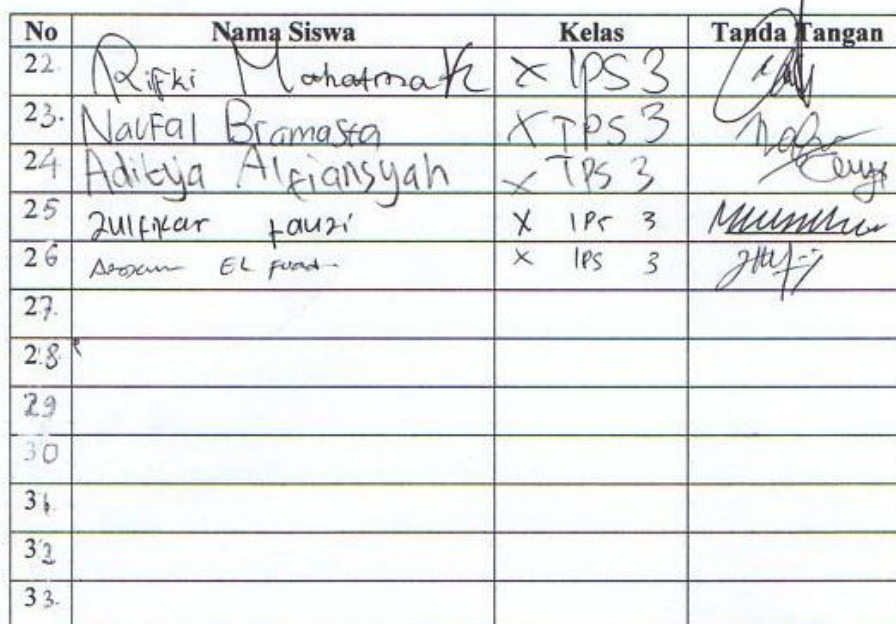 No Nama Siswa Kelas Tanda Tangan
22. Rifki Mahatma K X IPS 3
23. Naufal Bramasta X IPS 3
24 Aditya Alfiansyah X IPS 3
25 Zulfikar Fauzi X IPS 3
26 EL Fuad X IPS 3
27.
28.
29
30
31.
32
33.